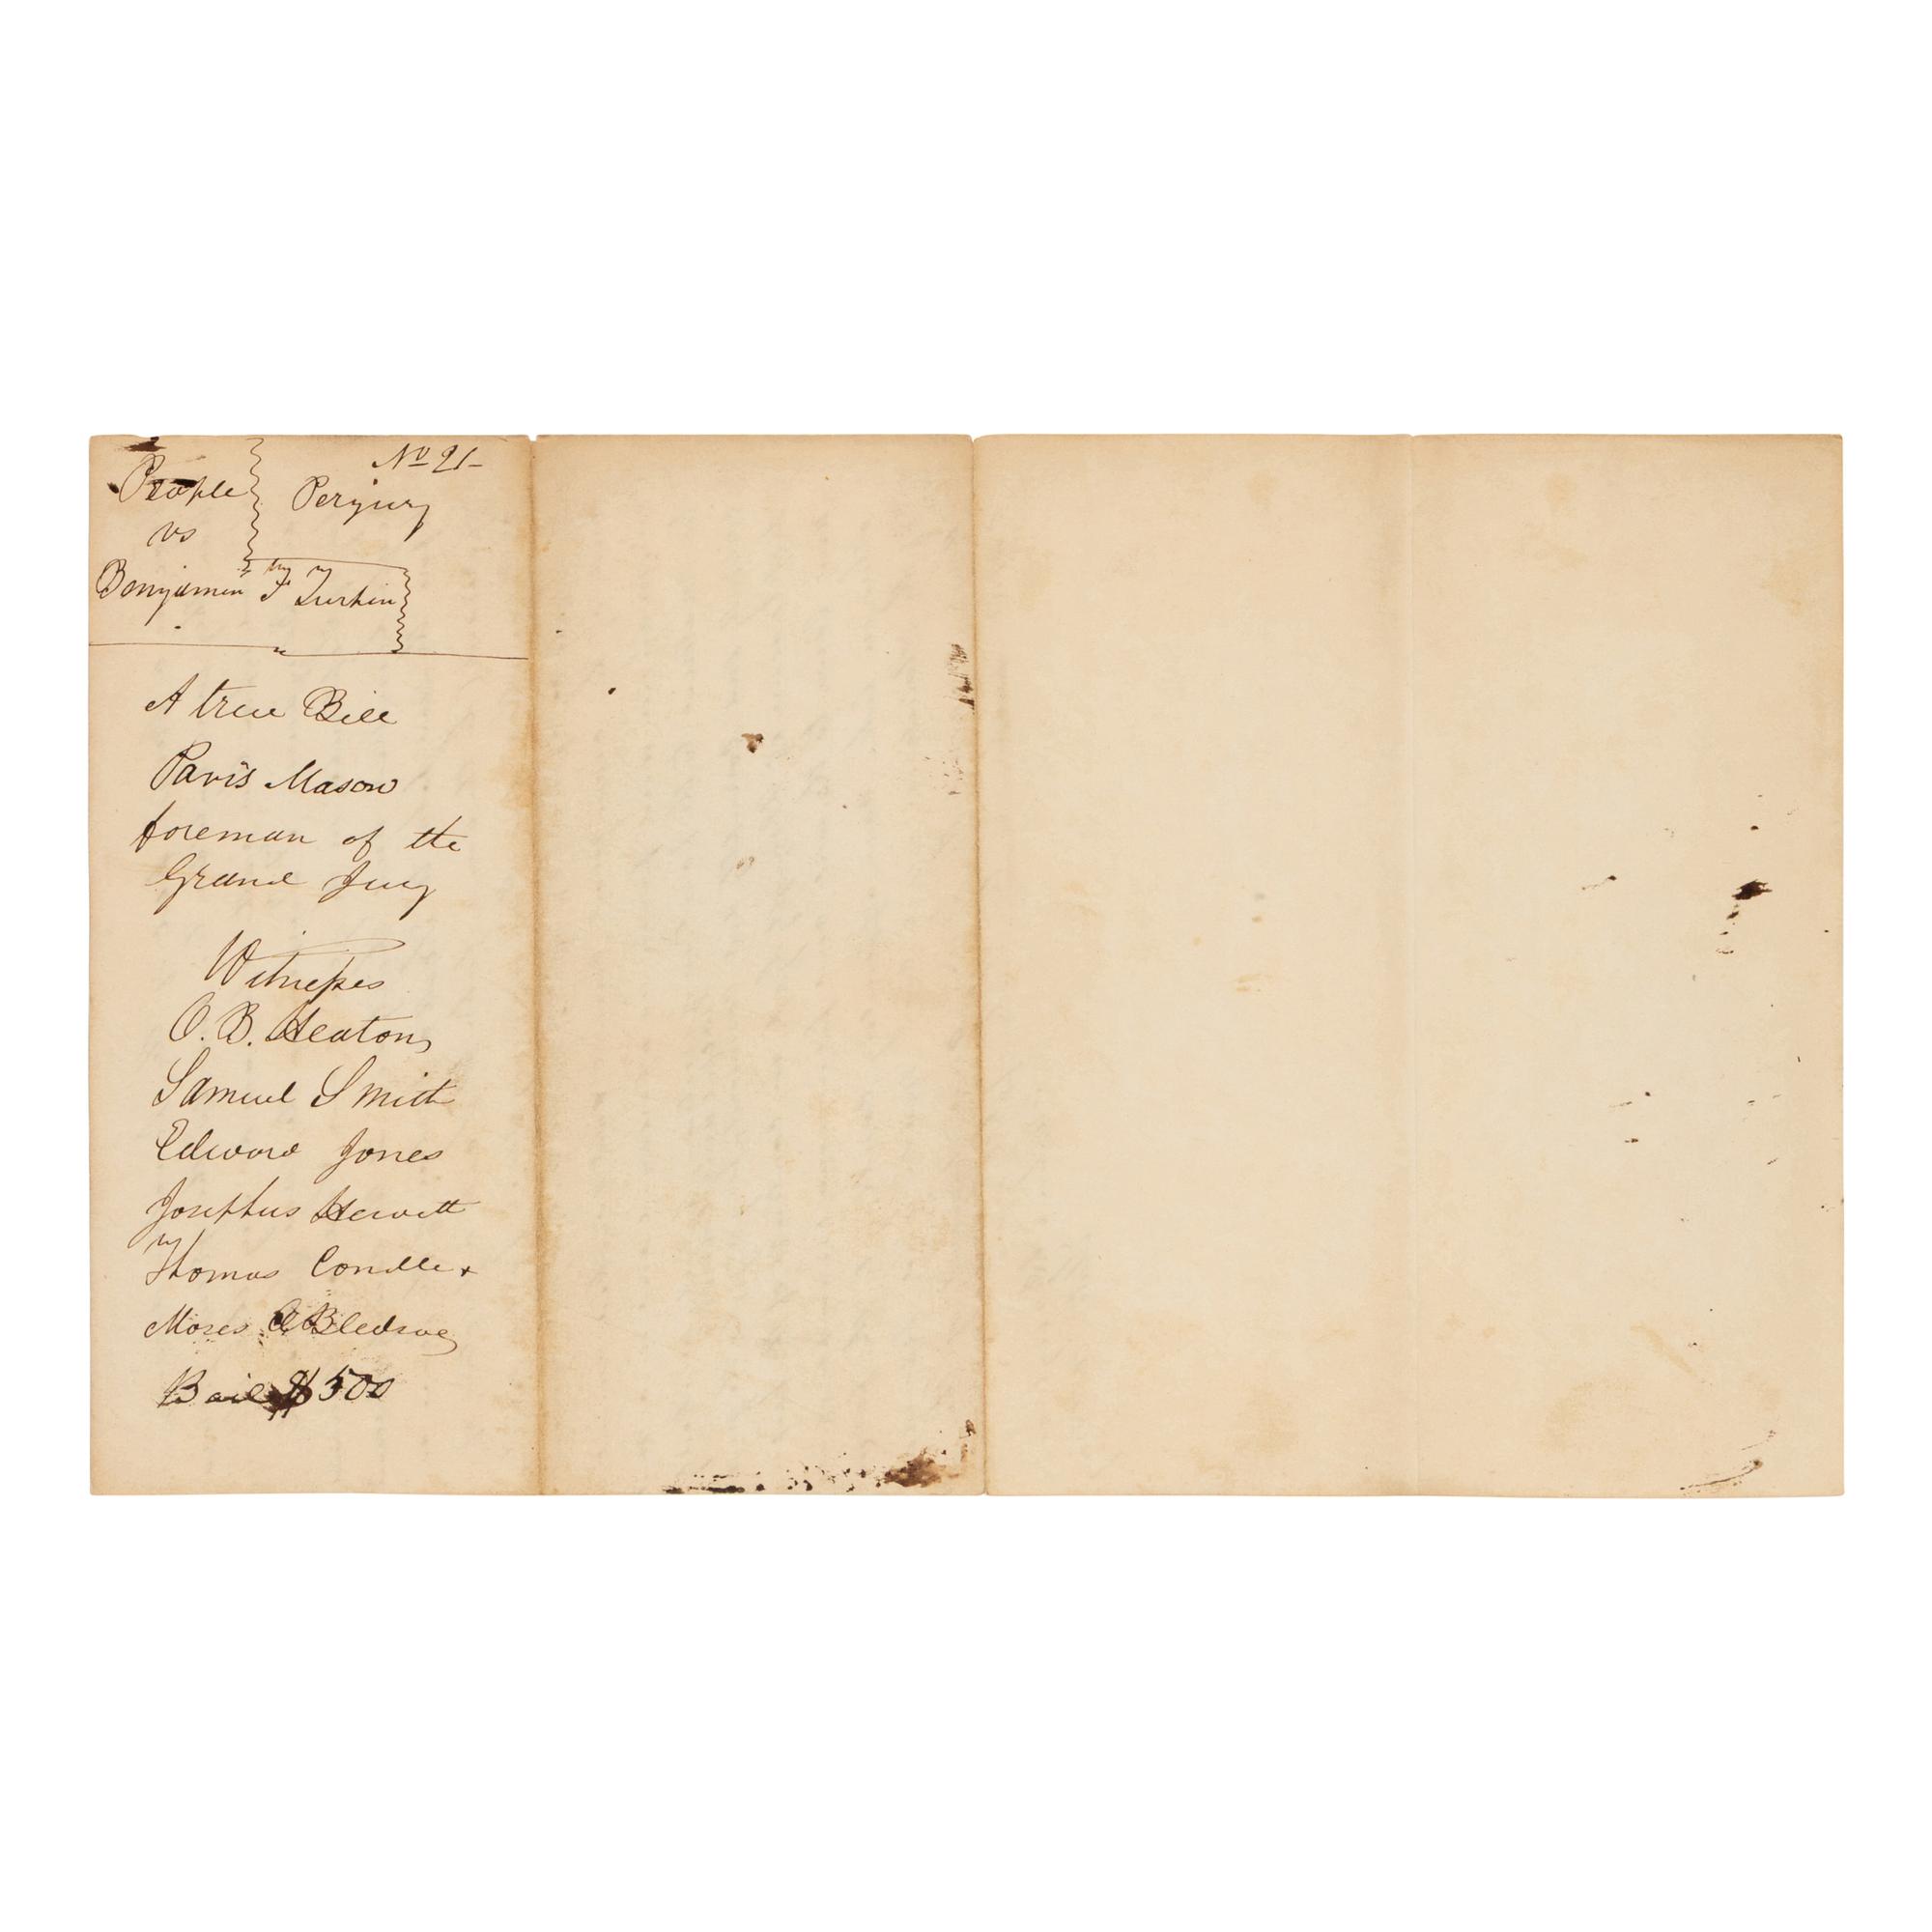 No 21
People
Perjury
vs
Benjamin F Turkin
A true Bill
Paris Mason
foreman of the
Grand Jury
Witnesses
O. B. Heaton
Samuel Smith
Edward Jones
Josephus Hewett
Thomas Condle
Moses Bledsoe
Bail $500